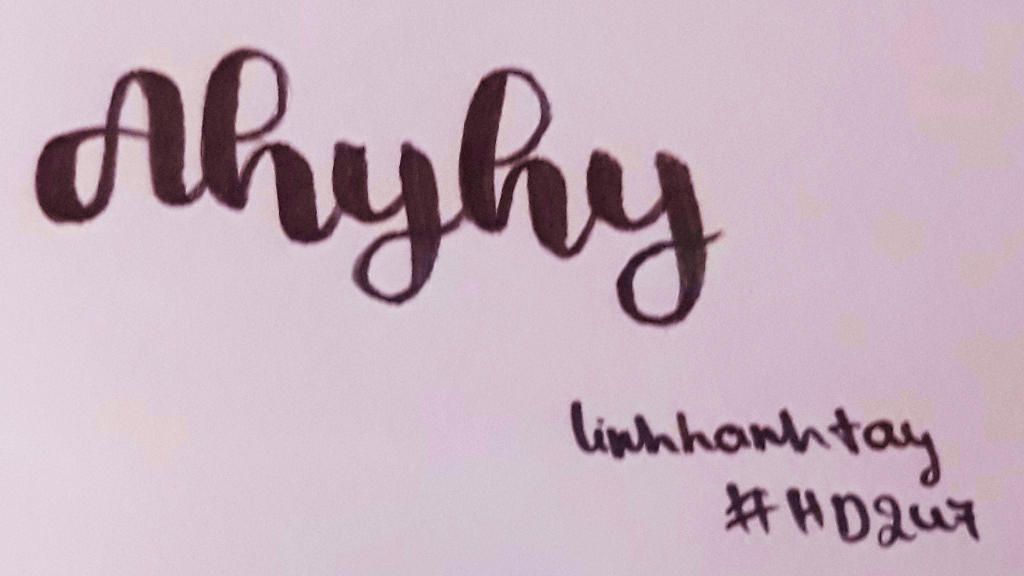 Ahyhy
linhhanhtay
#HD247